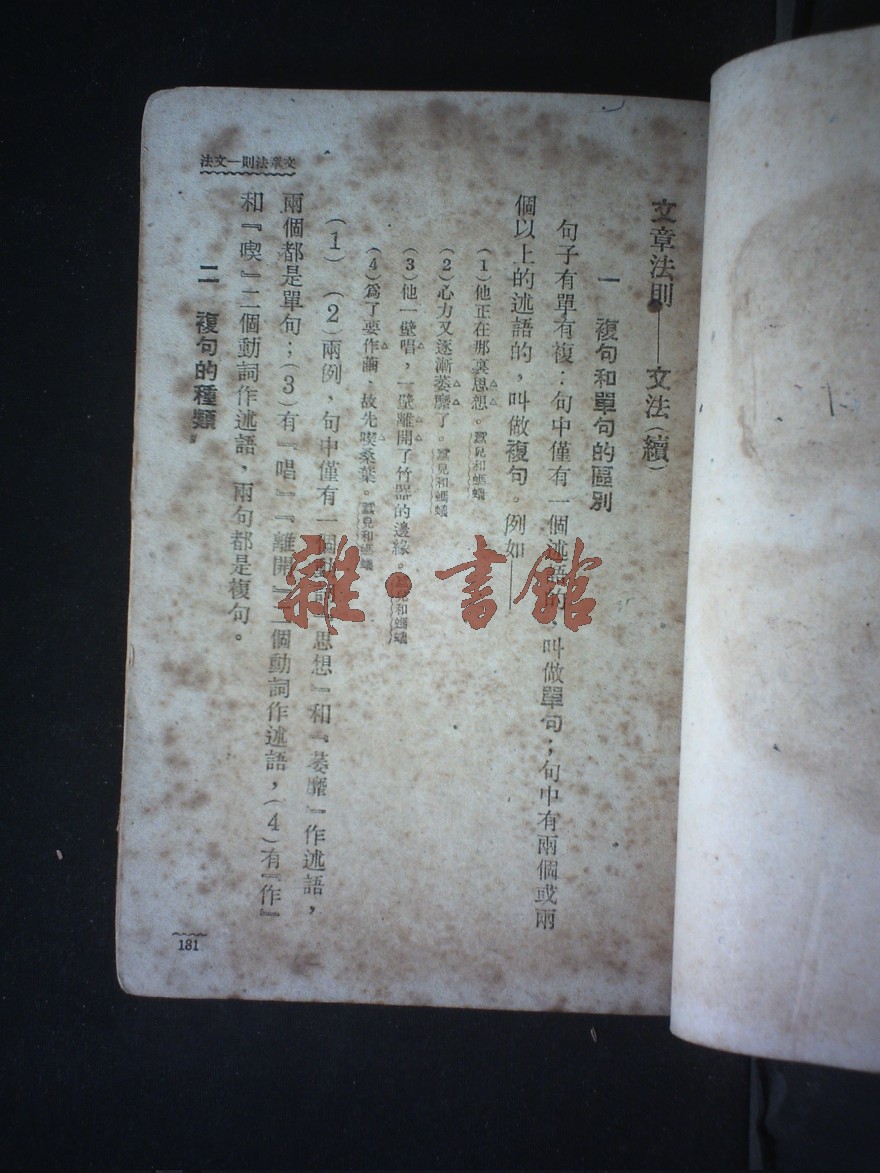 文章法則——文法(續)
一 複句和單句的區別
句子有單有複：句中僅有一個述語的，叫做單句；句中有兩個或兩
個以上的述語的，叫做複句。例如——
(1)他正在那裏思想。蠶兒和螞蟻
(2)心力又逐漸萎靡了。蠶兒和螞蟻
(3)他一壁唱，一壁離開了竹器的邊緣。蠶兒和螞蟻
(4)爲了要作繭，故先喫桑葉。蠶兒和螞蟻
(1)(2)兩例，句中僅有一個動詞『思想』和『萎靡』作述語，
兩個都是單句；(3)有『唱』『離開』二個動詞作述語，(4)有『作』
和『喫』二個動詞作述語，兩句都是複句。
二 複句的種類
文章法則—文法
181
雜·書館